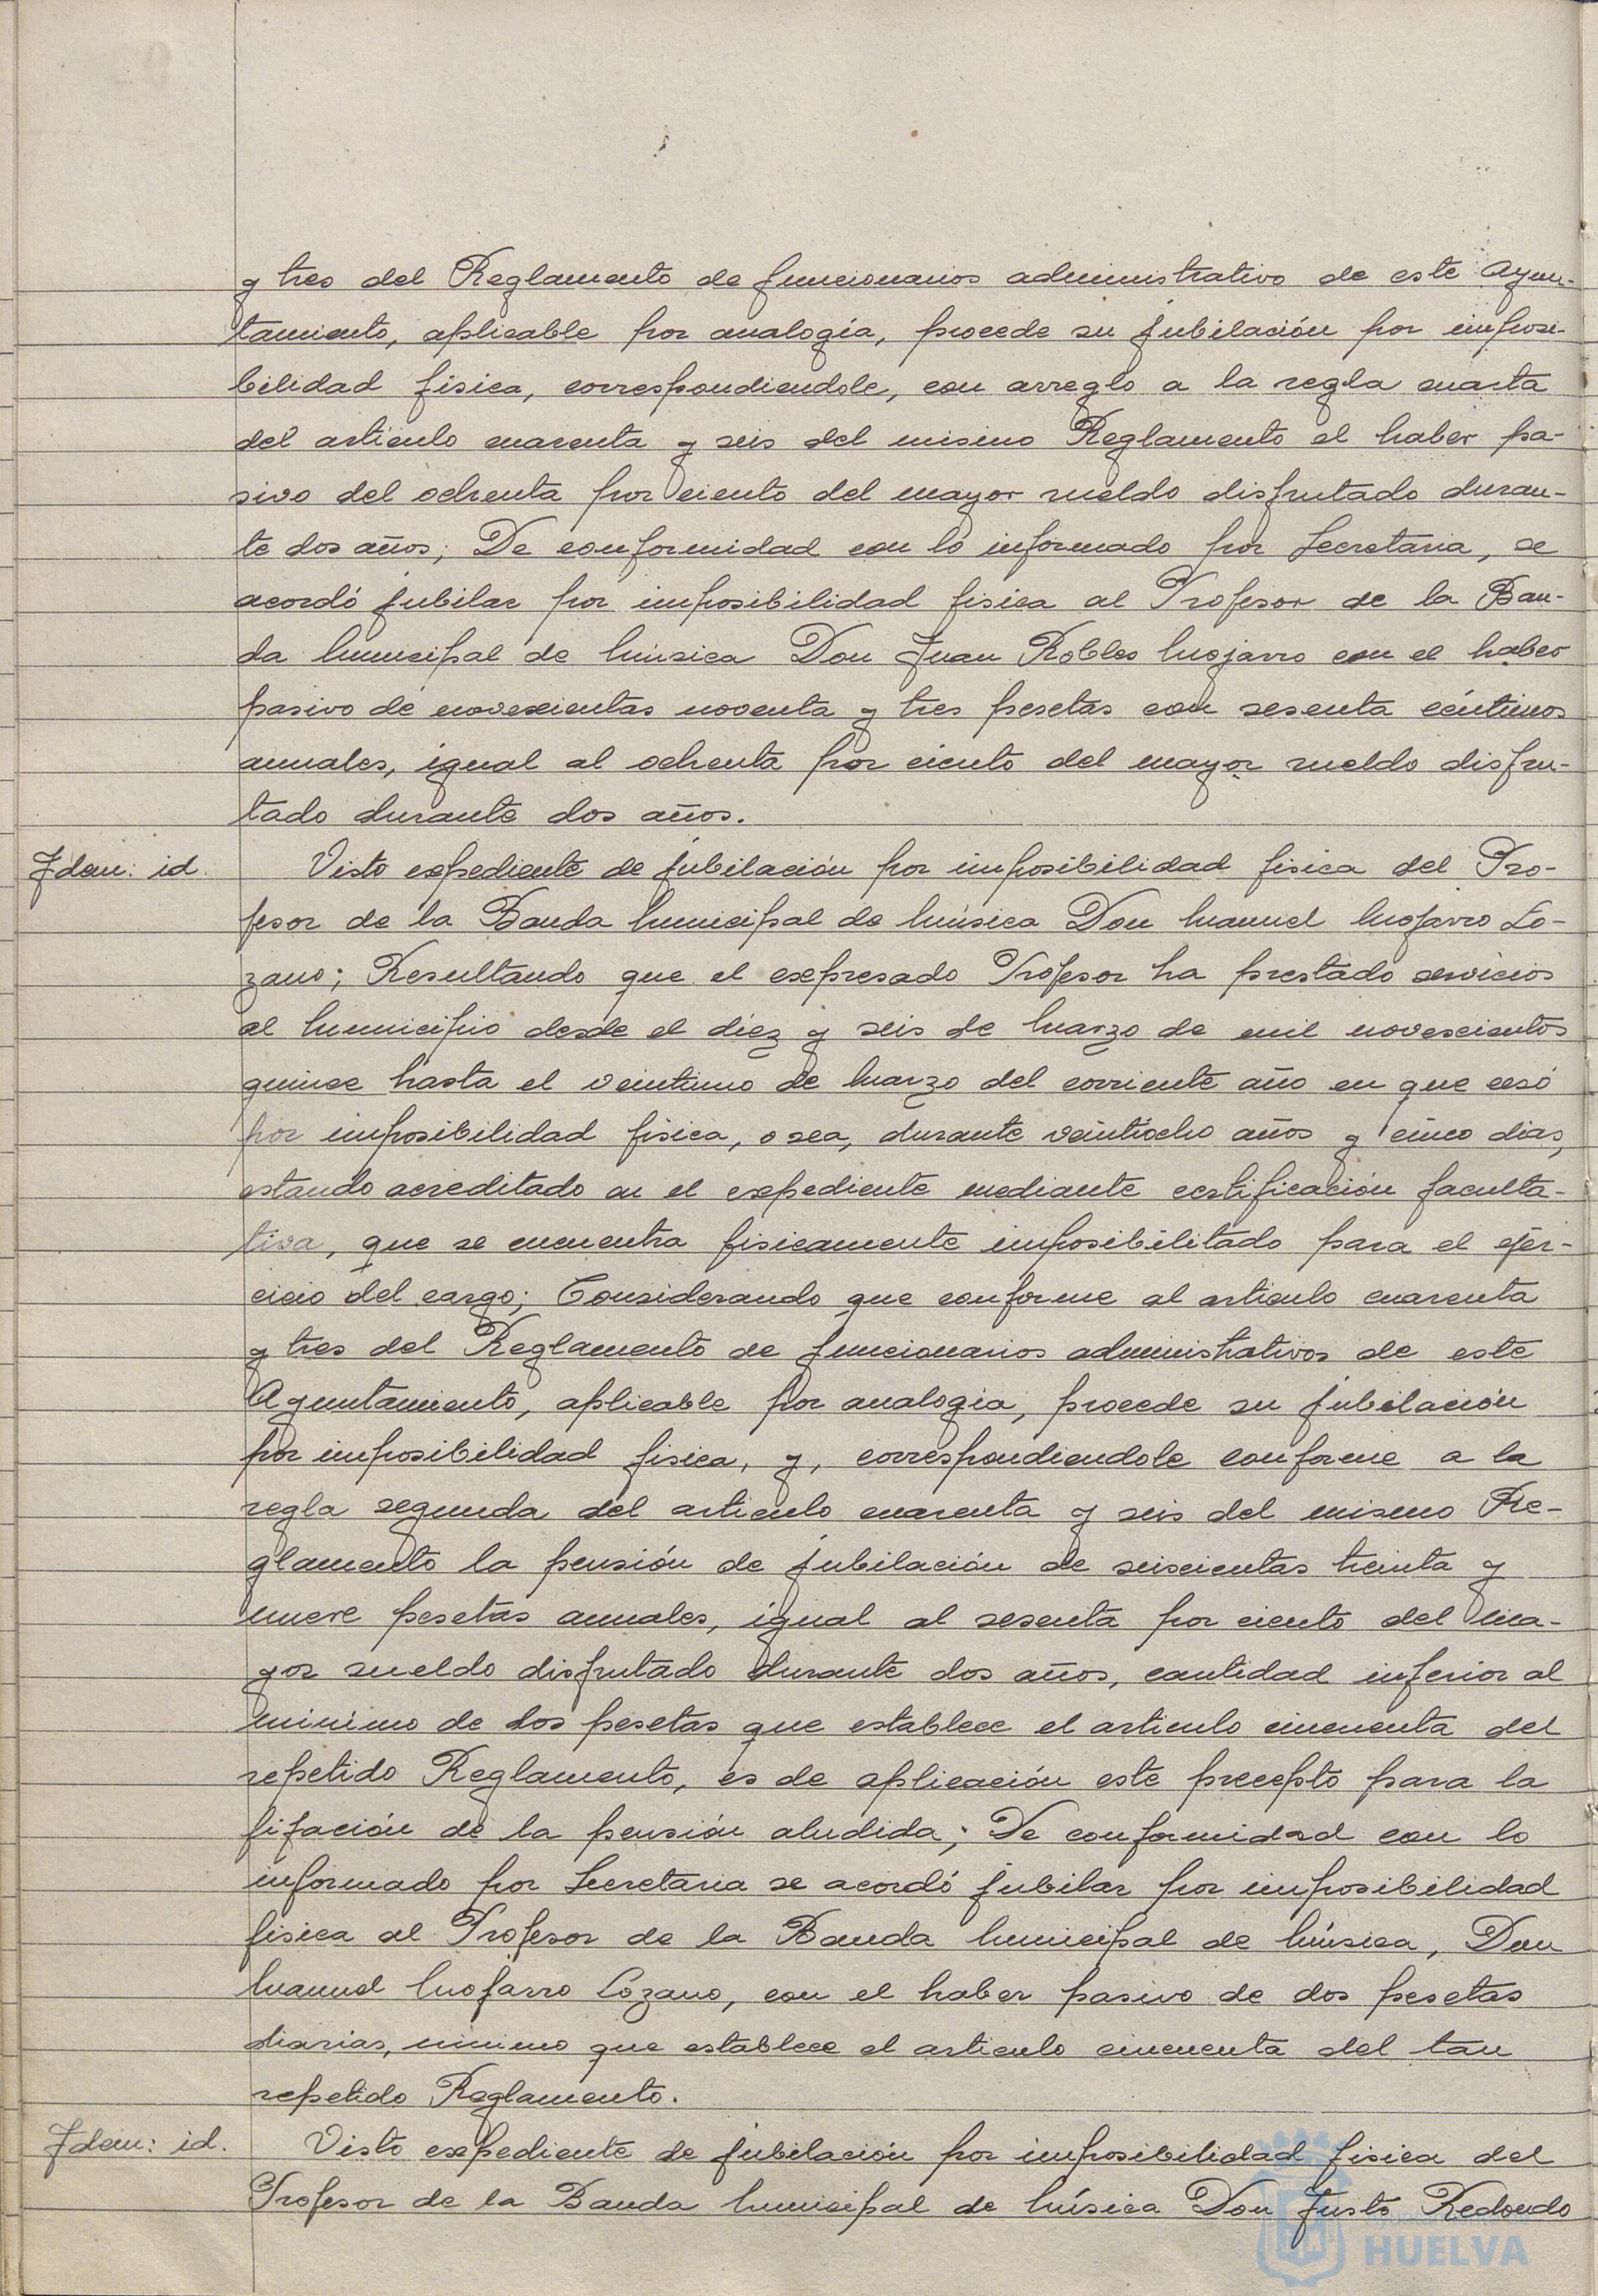 y tres del Reglamento de funcionarios administrativo de este Ayun-
tamiento, aplicable por analogía, procede su jubilación por imposi-
bilidad fisica, correspondiendole, con arreglo a la regla cuarta
del articulo cuarenta y seis del mismo Reglamento el haber pa-
sivo del ochenta por ciento del mayor sueldo disfrutado duran-
te dos años; De conformidad con lo informado por Secretaria, se
acordó jubilar por imposibilidad fisica al Profesor de la Ban-
da Municipal de Música Don Juan Robles Mojarro con el haber
pasivo de novescientas noventa y tres pesetas con sesenta céntimos
anuales, igual al ochenta por ciento del mayor sueldo disfru-
tado durante dos años.
Idem: id.
Visto expediente de jubilación por imposibilidad fisica del Pro-
fesor de la Banda Municipal de Música Don Manuel Mojarro Lo-
zano; Resultando que el expresado Profesor ha prestado servicios
al Municipio desde el diez y seis de Marzo de mil novescientos
quince hasta el veintiuno de Marzo del corriente año en que cesó
por imposibilidad fisica, o sea, durante veintiocho años y cinco dias,
estando acreditado en el expediente mediante certificación faculta-
tiva, que se encuentra fisicamente imposibilitado para el ejer-
cicio del cargo; Considerando que conforme al articulo cuarenta
y tres del Reglamento de funcionarios administrativos de este
Ayuntamiento, aplicable por analogia, procede su jubilación
por imposibilidad fisica, y, correspondiendole conforme a la
regla segunda del articulo cuarenta y seis del mismo Re-
glamento la pensión de jubilación de seiscientas treinta y
nueve pesetas anuales, igual al sesenta por ciento del ma-
yor sueldo disfrutado durante dos años, cantidad inferior al
minimo de dos pesetas que establece el articulo cincuenta del
repetido Reglamento, es de aplicación este precepto para la
fijación de la pensión aludida; De conformidad con lo
informado por Secretaria se acordó jubilar por imposibilidad
fisica al Profesor de la Banda Municipal de Música, Don
Manuel Mojarro Lozano, con el haber pasivo de dos pesetas
diarias, minimo que establece el articulo cincuenta del tan
repetido Reglamento.
Idem: id.
Visto expediente de jubilación por imposibilidad fisica del
Profesor de la Banda Municipal de Música Don Justo Redondo
HUELVA